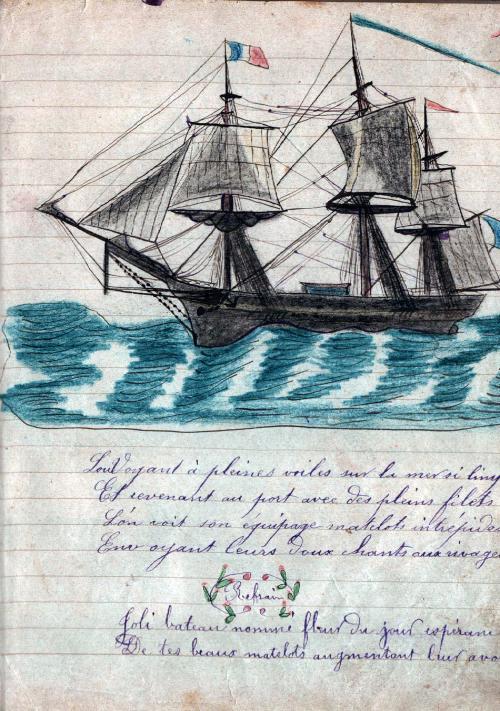 Lou Voyant à pleines voiles sur la mer si
Et revenant au port avec des pleins filets
L'on voit son équipage matelots intrépides
Envoyant leurs doux chants aux rivages
Refrain
Joli bateau nommé fleur du jour
De tes beaux matelots augmentant leur